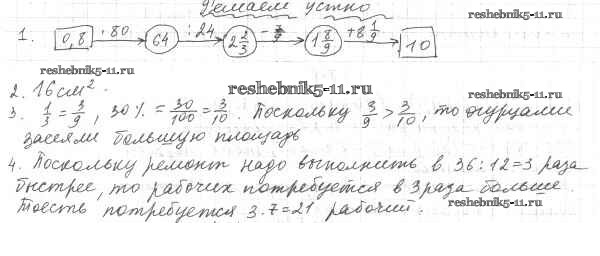 Делаем устно
reshebnik5-11.ru
1. 0,8 ·80 64 :24 2 2/3 - 7/9 1 8/9 +8 1/9 10
reshebnik5-11.ru
2. 16 см².
reshebnik5-11.ru
3. 1/3 = 3/9, 30% = 30/100 = 3/10. Поскольку 3/9 > 3/10, то огурцами
засеяли большую площадь
reshebnik5-11.ru
4. Поскольку ремонт надо выполнить в 36:12=3 раза
быстрее, то рабочих потребуется в 3 раза больше.
Тоесть потребуется 3·7=21 рабочий.
reshebnik5-11.ru